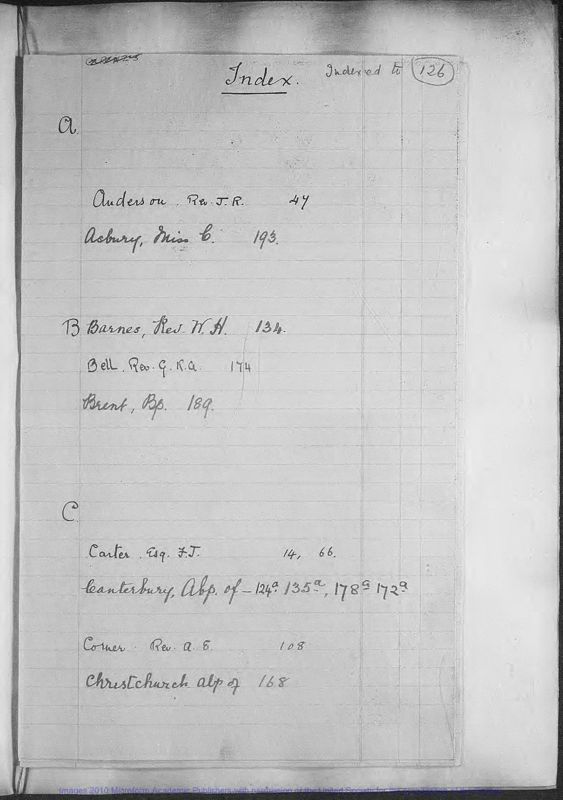 Index.
Indexed to 126
A
Anderson. Rev. J. R. 47
Asbury, Miss C. 193.
B Barnes, Rev. W. H. 134.
Bell. Rev. G. K. A. 174
Brent, Bp. 189.
C
Carter. Esq. F. J. 14, 66.
Canterbury, Abp. of - 124a. 135a, 178a 172a
Comer. Rev. A. E. 108
Christchurch Abp of 168
Images 2010 Microform Academic Publishers with permission of the United Society for the